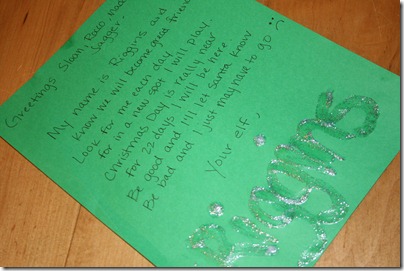 Greetings Sloan,
Jagger,
My name is Riggins and
Know we will become great friend
Look for me each day
for in a new spot I will play.
Christmas Day is really near
For 22 days I will be here.
Be good and I'll let Santa know
Be bad and I just may have to go :(
Your elf,
Riggins